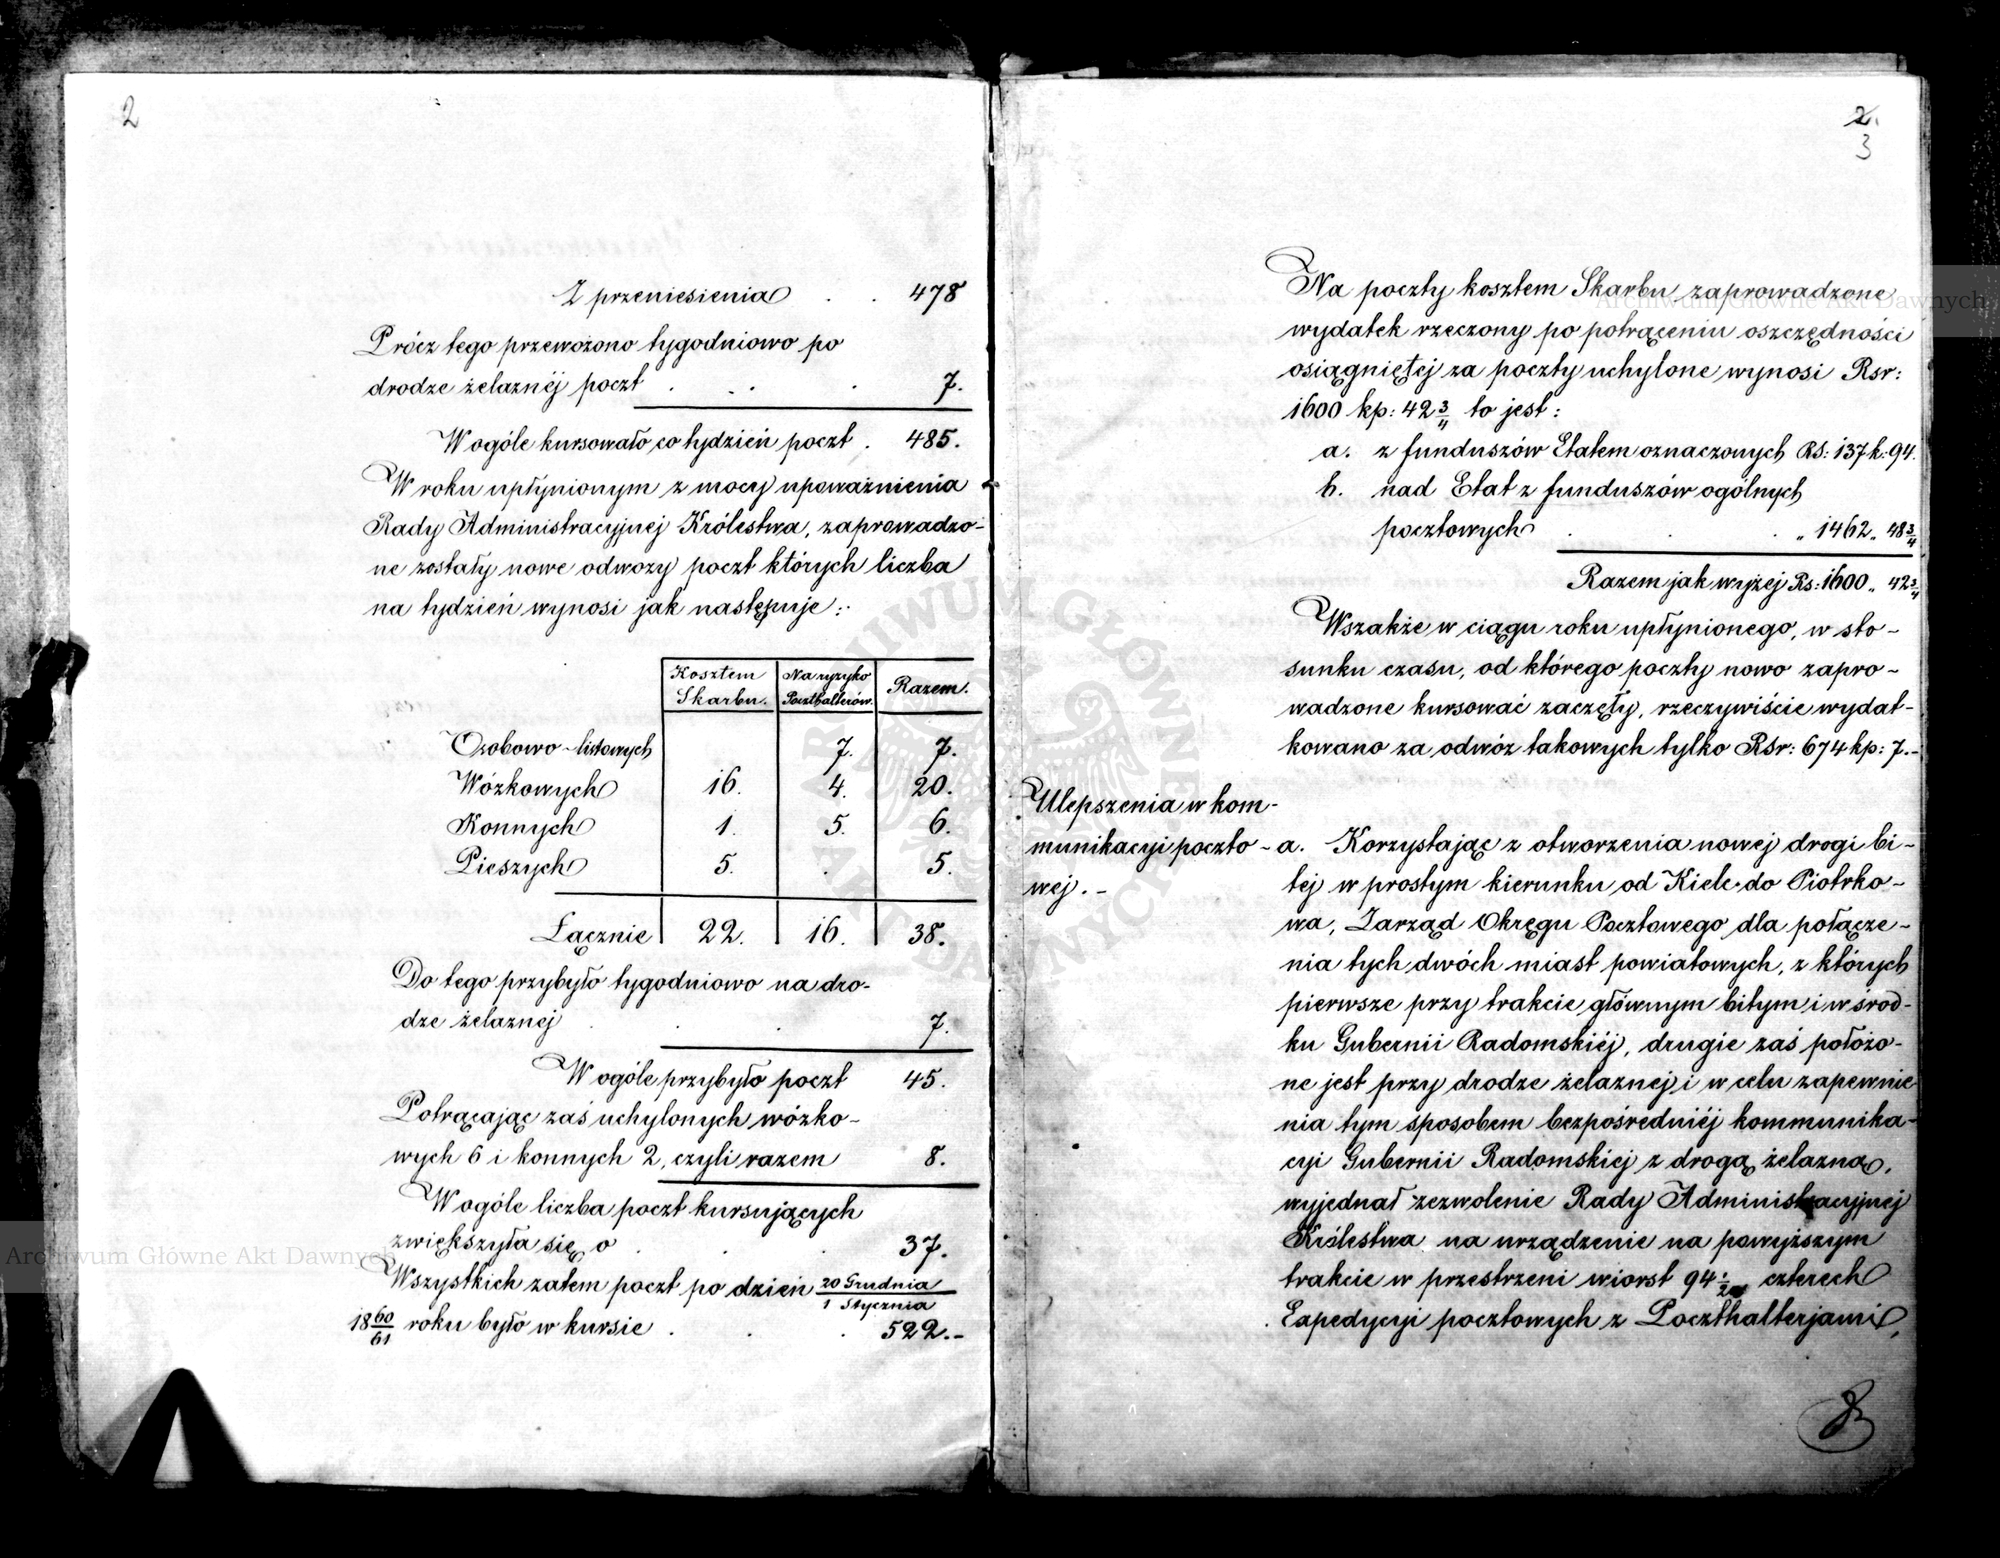 2
Z przeniesienia . . 478
Prócz tego przewożono tygodniowo po
drodze żelaznéj poczt . . . 7.
W ogóle kursowało co tydzień poczt . 485.
W roku upłynionym z mocy upoważnienia
Rady Administracyjnej Królestwa, zaprowadzo-
ne zostały nowe odwozy poczt których liczba
na tydzień wynosi jak następuje:
Kosztem Skarbu. Na ryzyko Poczthalterów. Razem.
Osobowo-listowych 7. 7.
Wózkowych 16. 4. 20.
Konnych 1. 5. 6.
Pieszych 5. . 5.
Łącznie 22. 16. 38.
Do tego przybyło tygodniowo na dro-
dze żelaznej . . . 7.
W ogóle przybyło poczt 45.
Potrącając zaś uchylonych wózko-
wych 6 i konnych 2, czyli razem 8.
W ogóle liczba poczt kursujących
zwiększyła się o . . . 37.
Wszystkich zatem poczt po dzień 20 Grudnia / 1 Stycznia
18 60/61 roku było w kursie . . . 522.-
2.
3
Na poczty kosztem Skarbu zaprowadzone
wydatek rzeczony po potrąceniu oszczędności
osiągniętej za poczty uchylone wynosi Rsr:
1600 kp: 42 3/4 to jest:
a. z funduszów Etatem oznaczonych RS: 137 k: 94.
b. nad Etat z funduszów ogólnych
pocztowych . . . „ 1462 „ 48 3/4
Razem jak wyżej Rs: 1600 „ 42 3/4
Wszakże w ciągu roku upłynionego, w sto-
sunku czasu, od którego poczty nowo zapro-
wadzone kursować zaczęły, rzeczywiście wydat-
kowano za odwóz takowych tylko RSr: 674 kp: 7.-
Ulepszenia w kom-
munikacyi poczto-
wej.-
a. Korzystając z otworzenia nowej drogi bi-
tej w prostym kierunku od Kielc do Piotrko-
wa, Zarząd Okręgu Pocztowego dla połącze-
nia tych dwóch miast powiatowych, z których
pierwsze przy trakcie głównym bitym i w środ-
ku Gubernii Radomskiéj, drugie zaś położo-
ne jest przy drodze żelaznej i w celu zapewnie-
nia tym sposobem bezpośredniéj kommunika-
cyi Gubernii Radomskiej z drogą żelazną,
wyjednał zezwolenie Rady Administracyjnej
Królestwa na urządzenie na powyższym
trakcie w przestrzeni wiorst 94 1/2 czterech
Expedycyi pocztowych z Poczthalterjami,
Archiwum Główne Akt Dawnych
Archiwum Główne Akt Dawnych
ARCHIWUM GŁÓWNE AKT DAWNYCH